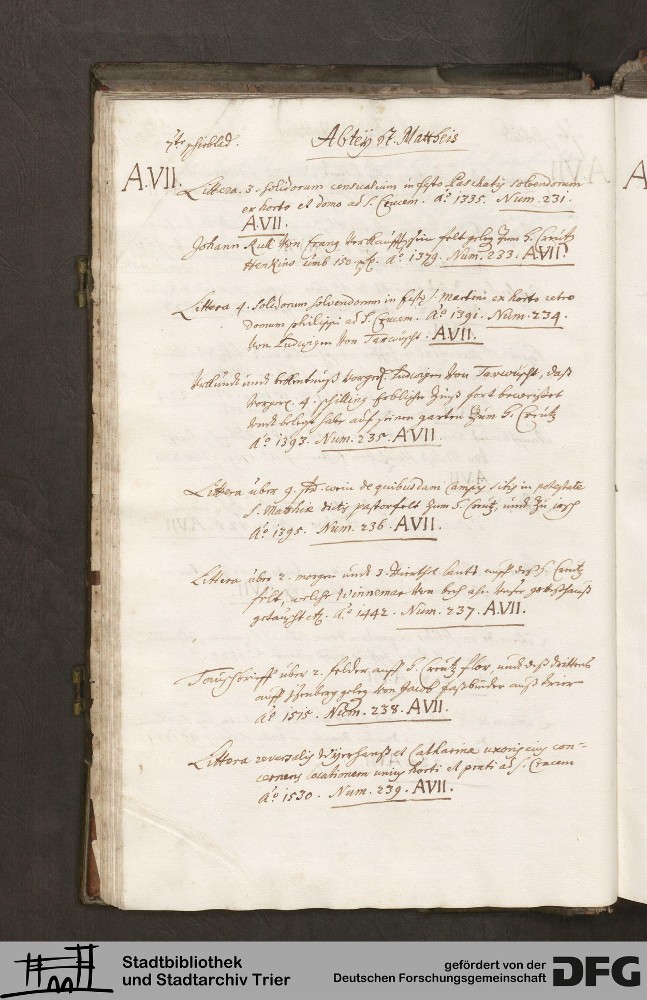 7te schieblad. Abtey St. Mattheis
A.VII. Littera. 3. solidorum censualium in festo Paschatis solvendorum
ex horto et domo ad S. Crucem. Aº 1335. Num. 231.
A.VII.
Johann Rull von
Henkins umb 150 Aº 1379. Num. 233. A.VII.
Littera 4. solidorum solvendorum in festo S. Martini ex horto retro
domum philippi ad S. Crucem. Aº 1391. Num. 234.
von Ludwigen von Tarwüscht. A.VII.
Urkundt und bekentnuß Ludwigen von Tarwüscht, daß
4. schilling erbliche Zinß fort beweißet
auf seinen garten Zum H. Creutz
Aº 1393. Num. 235. A.VII.
Littera über 9. de quibusdam campis sitis in potestate
S. Matthiæ dictis pastorfelt Zum H. Creutz, und Zu
Aº 1395. Num. 236. A.VII.
Littera über 2. morgen und 3. Viertheil landts auff deß H. Creutz
felt, welche Winnemar von unser gotteßhauß
getauscht etc. Aº 1442. Num. 237. A.VII.
Tauschbrieff über 2. felder auff H. Creutz flor, und deß drittens
auff von Jacob auß trier
Aº 1515. Num. 238. A.VII.
Littera reversalis et Catharinæ uxoris eius con-
cernens locationem unius horti et prati ad S. Crucem
Aº 1530. Num. 239. A.VII.
A
Stadtbibliothek
und Stadtarchiv Trier
gefördert von der
Deutschen Forschungsgemeinschaft
DFG